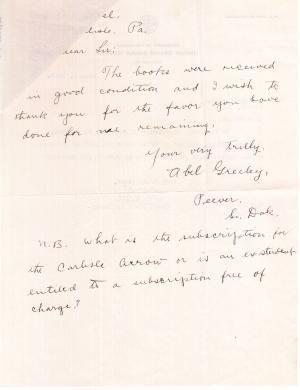 el.
lisle, Pa.
ear Sir;
The books were received
in good condition and I wish to
thank you for the favor you have
done for me. remaining,
Your very trully.
Abel Greeley,
Peever,
So. Dak.
N.B. What is the subscription for
the Carlisle Arrow or is an exstudent
entitled to a subscription free of
charge?